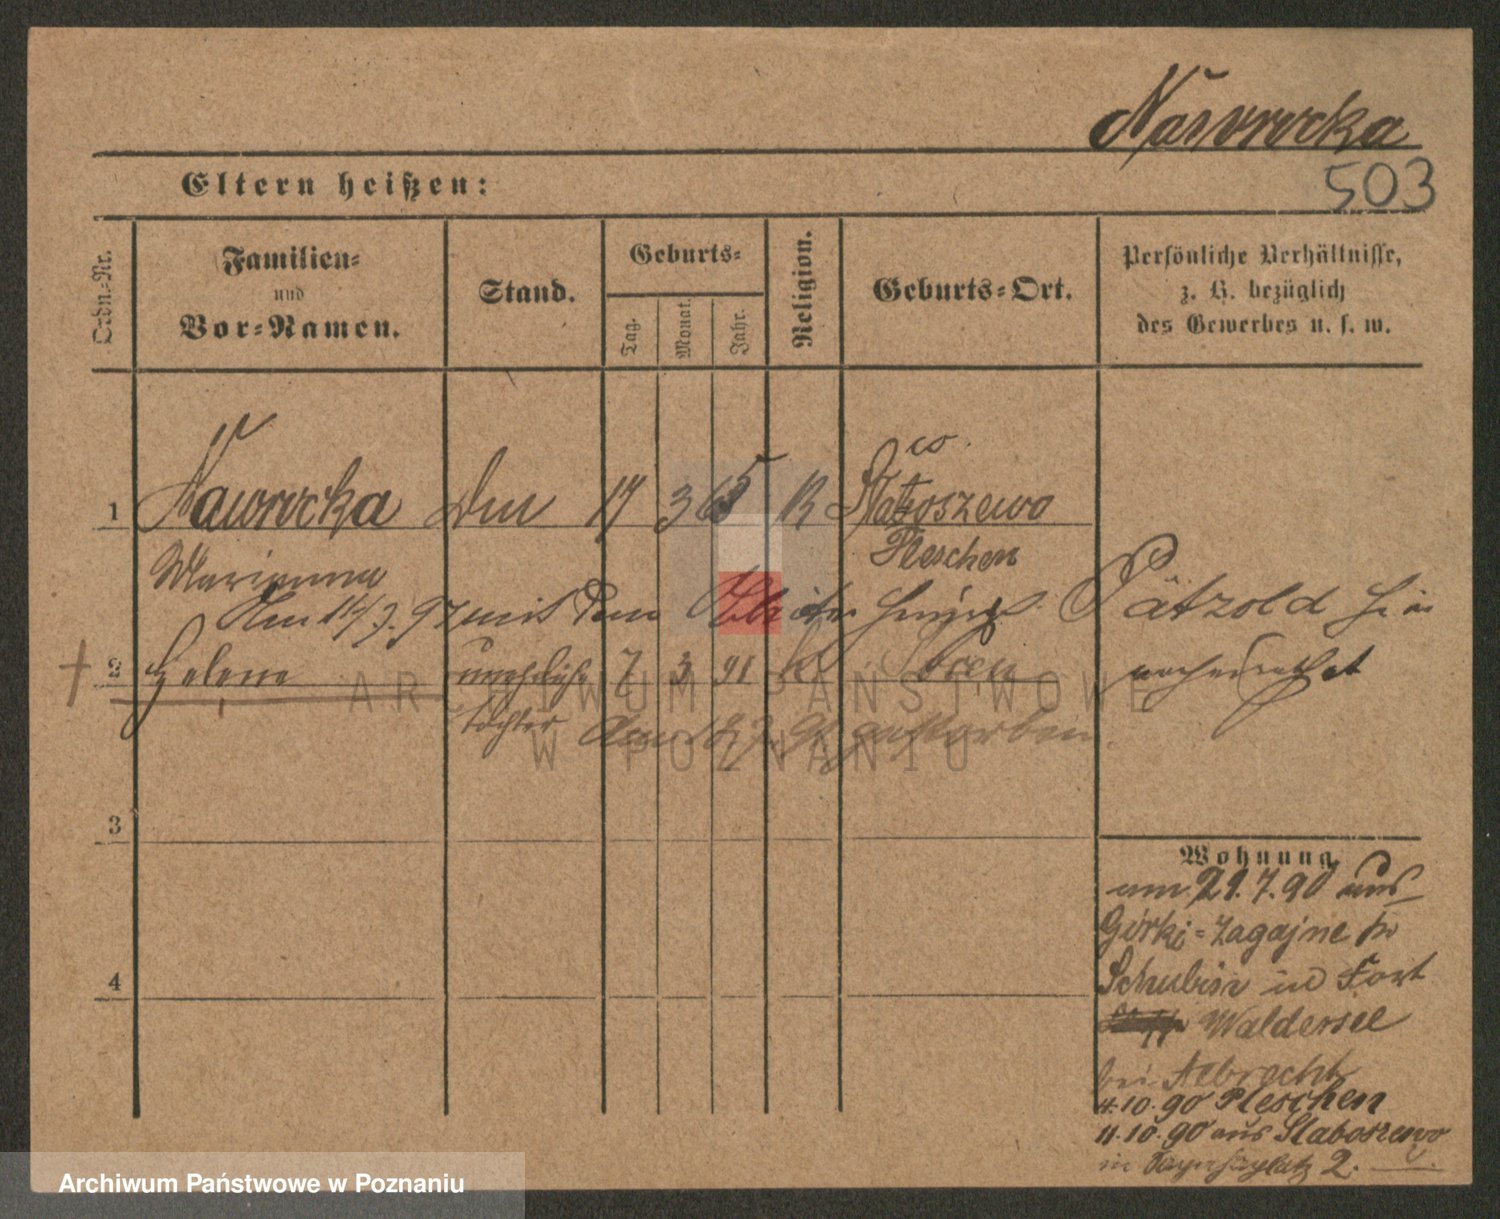 Nawrocka
503
Eltern heißen:
Ordn.-Nr.
Familien-
und
Vor-Namen.
Stand.
Geburts-
Tag.
Monat.
Jahr.
Religion.
Geburts-Ort.
Persönliche Verhältnisse,
z. B. bezüglich
des Gewerbes u. s. w.
1 Nawrocka 17 3 65
Pleschen
Marianna
Am 97 mit dem Pätzold hier
2 Helene uneheliche 7 3 91 Posen verheirathet
Tochter gestorben
3
4
Wohnung
am 21.7.90 aus
Gorki-Zagajne
Schubin in Fort
Waldersee
bei Albrecht
4.10.90 Pleschen
11.10.90 aus Slaboszewo
in 2.
ARCHIWUM PAŃSTWOWE
W POZNANIU
Archiwum Państwowe w Poznaniu